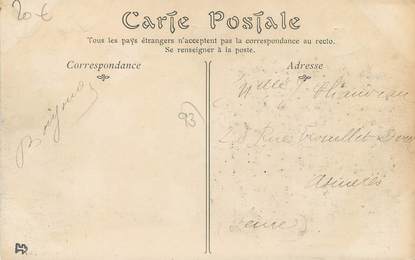 20 €
Carte Postale
Tous les pays étrangers n'acceptent pas la correspondance au recto.
Se renseigner à la poste.
Correspondance
Adresse
93)
Melle
Rue Trouillet
Asnières
Seine